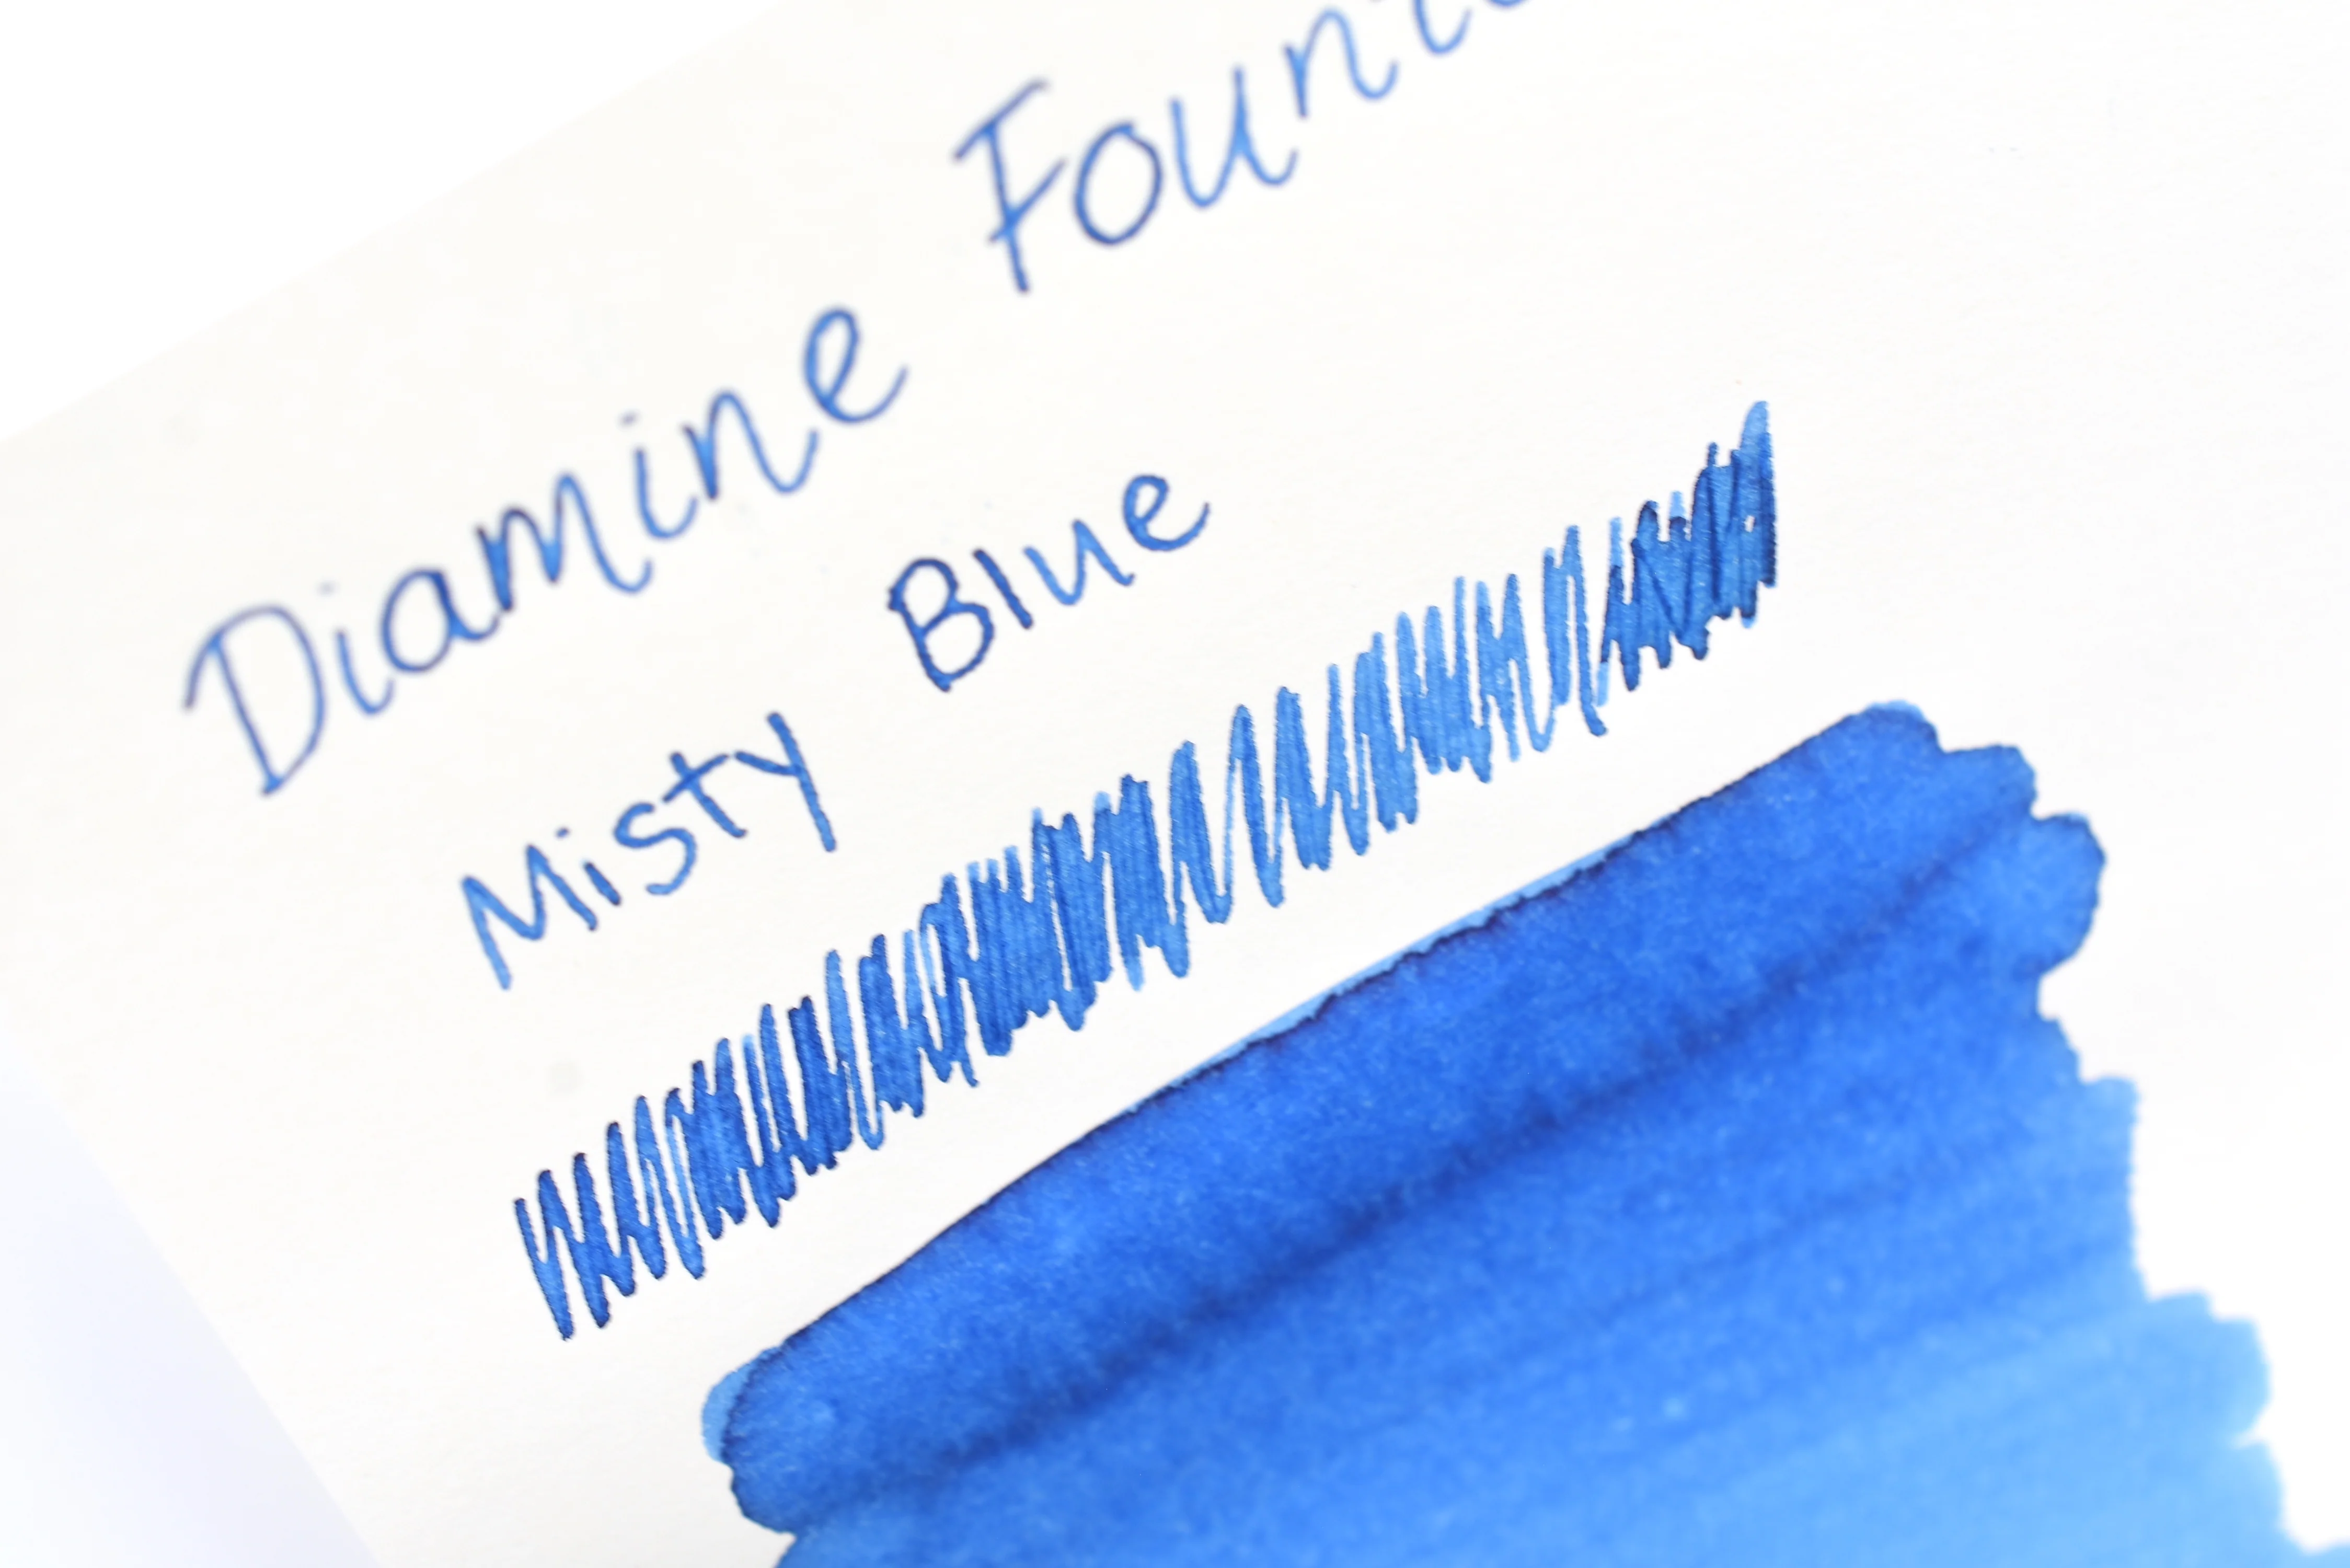 Diamine Fount
Misty Blue